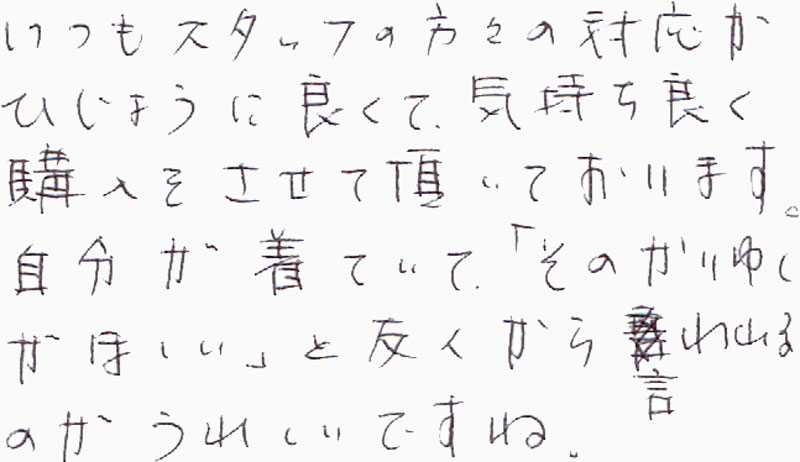 いつもスタッフの方々の対応が
ひじょうに良くて、気持ち良く
購入をさせて頂いております。
自分が着ていて、「そのかりゆし
がほしい」と友人から言われる
のがうれしいですね。